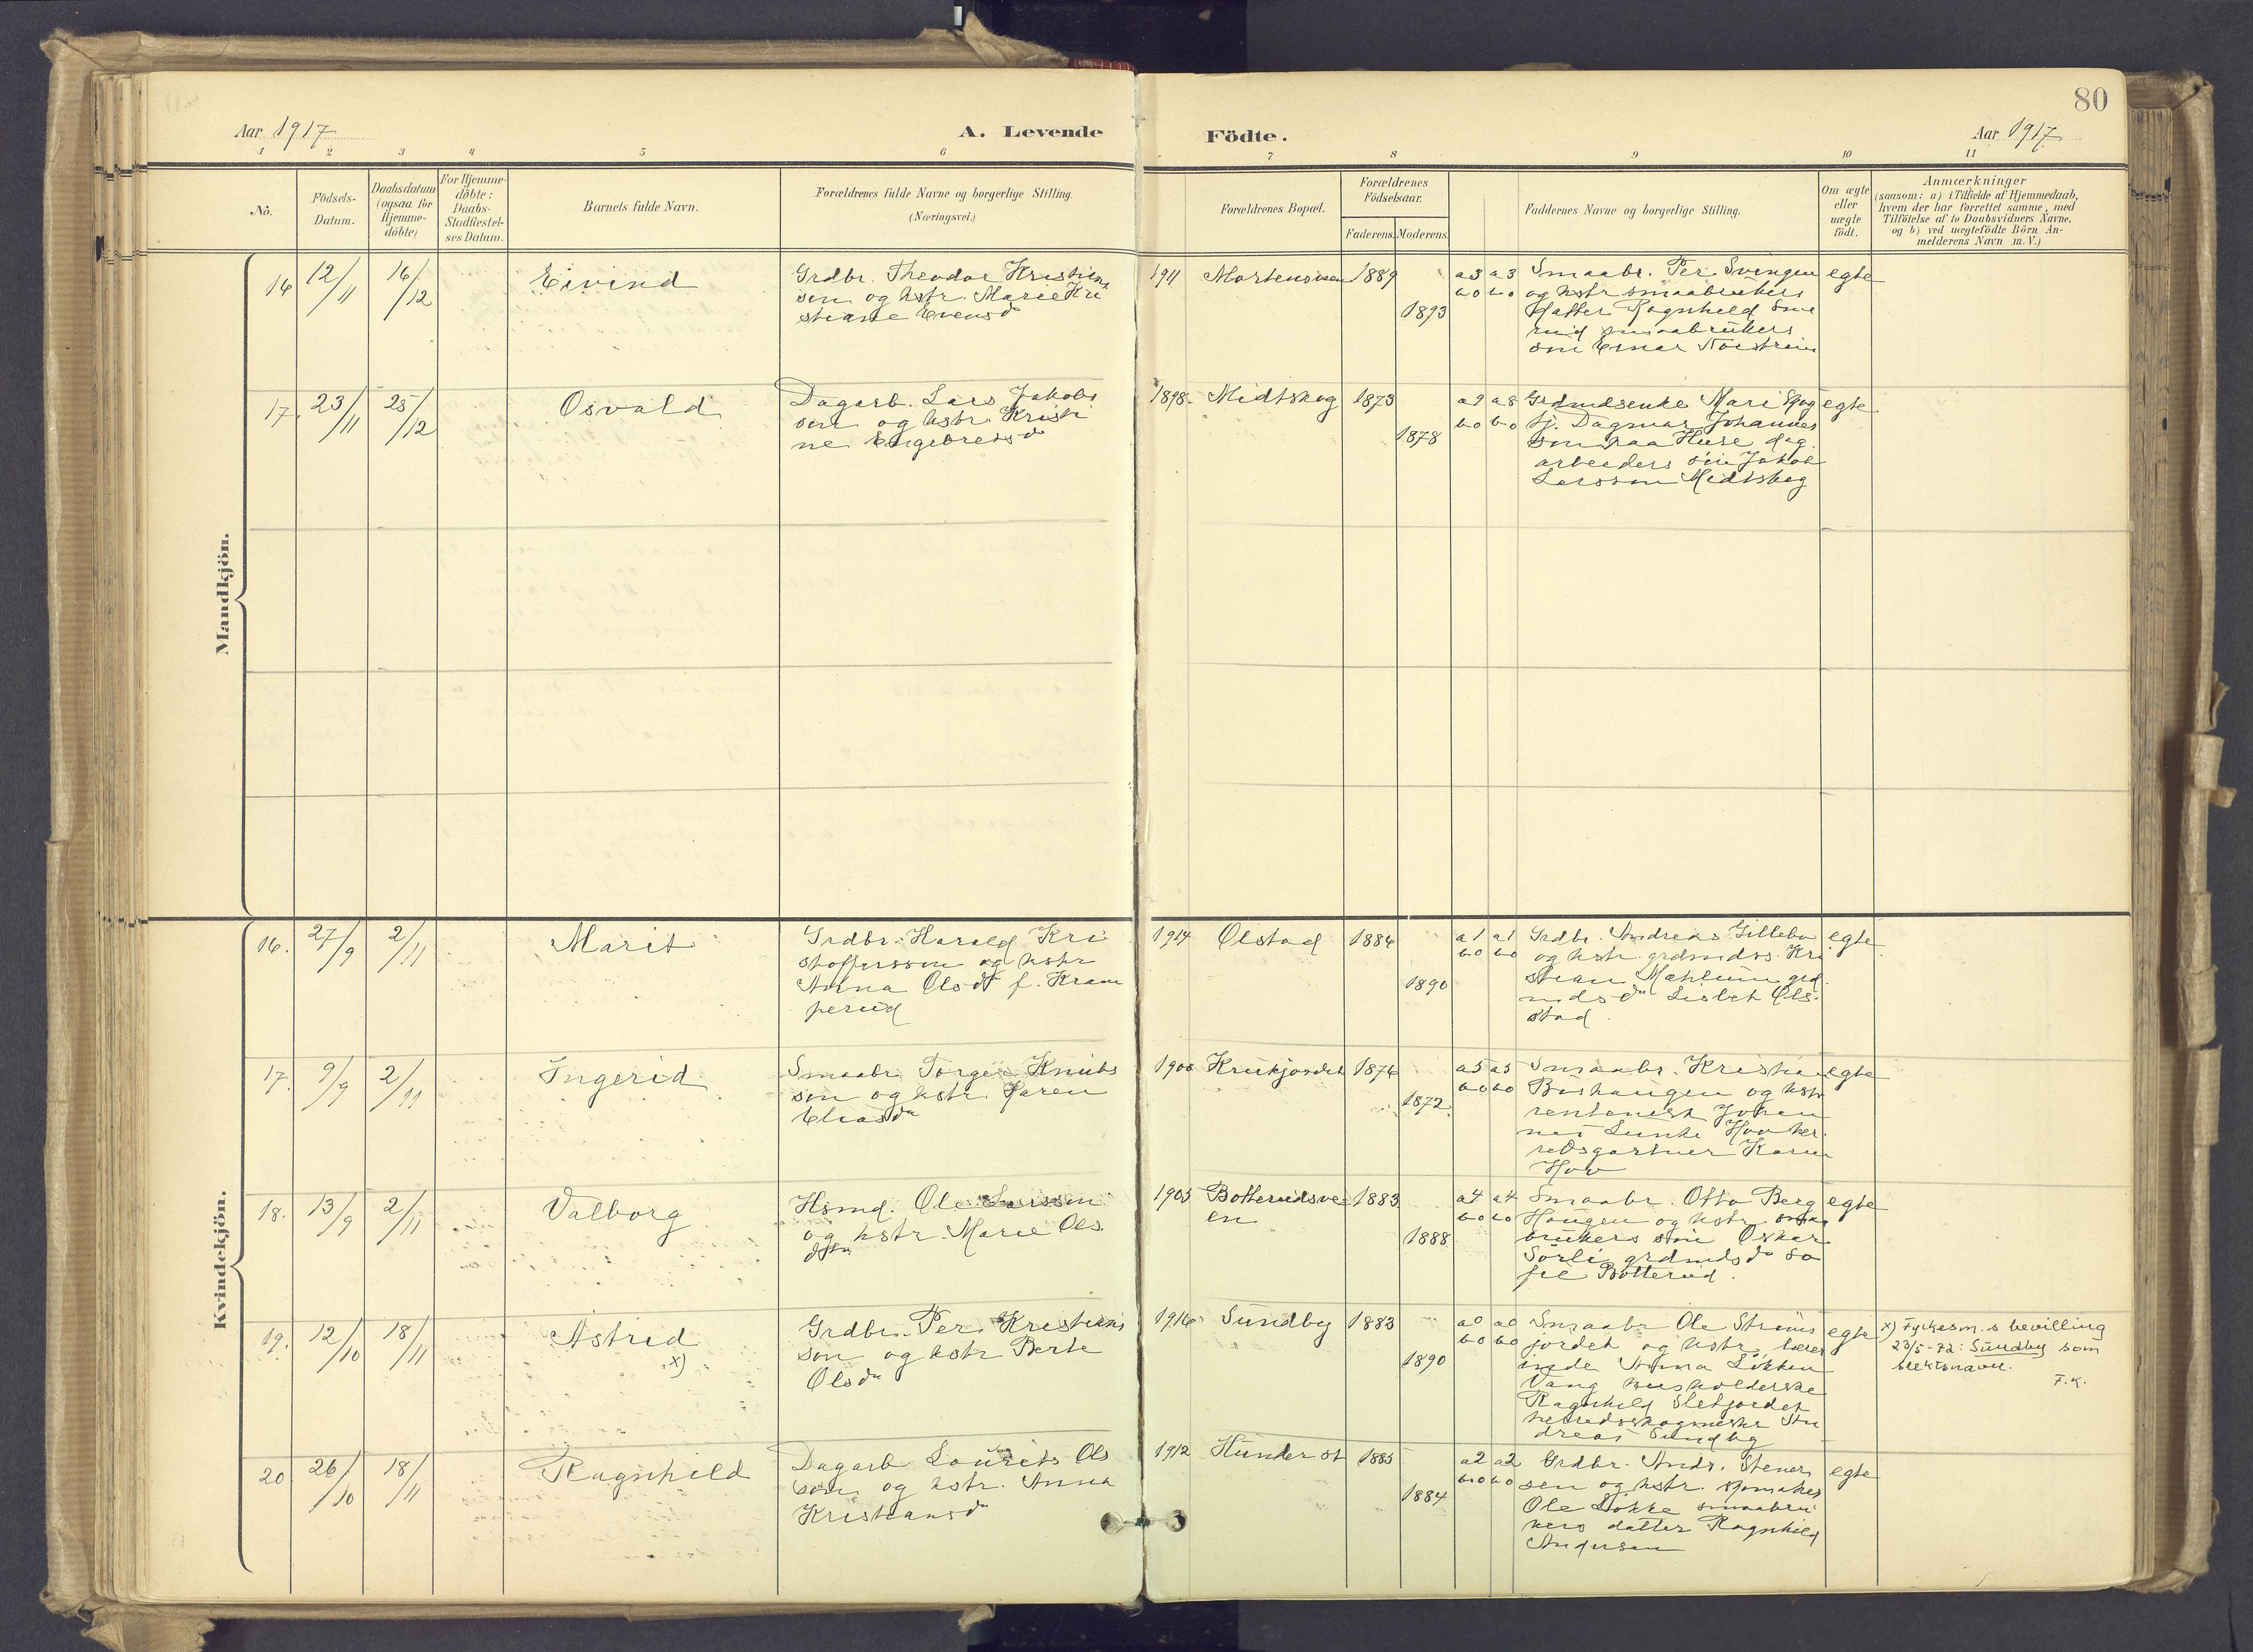 80
Aar 1917
A. Levende
Födte.
Aar 1917
1 2 3 4 5 6 7 8 9 10 11
No.
Födsels-
Datum.
Daabsdatum
(ogsaa for
Hjemme-
döbte)
For Hjemme-
döbte:
Daabs-
Stadfæstel-
ses Datum.
Barnets fulde Navn.
Forældrenes fulde Navne og borgerlige Stilling.
(Næringsvei.)
Forældrenes Bopæl.
Forældrenes
Födselsaar.
Faderens. Moderens.
Faddernes Navne og borgerlige Stilling.
Om ægte
eller
uægte
födt.
Anmærkninger
(saasom: a) i Tilfælde af Hjemmedaab,
hvem der har forrettet samme, med
Tilföielse af to Daabsvidners Navne.
og b) ved uægtefödte Börn An-
melderens Navn m. V.)
Mandkjön.
16 12/11 16/12
Eivind
Grdbr. Theodor Kristian
sen og hstr. Marie Kri
stiane Evensdr
1911 1889
1893
a3 a3
b0 b0
Smaabr. Per Svingen
og hstr. smaabrukers
datter Ragnhild
smaabrukers
søn Einar
egte
17. 23/11 25/12
Osvald
Dagarb. Lars Jakobs
sen og hstr. Kristi
ne Engebretsdr
1898 Midtskog 1873
1878
a9 a8
b0 b0
Grdmdsenke Mari Skog
tj. Dagmar Johannes
sen paa Huse dag
arbeiders søn Jakob
Larssen Midtskog
egte
Kvindekjön.
16. 27/9 2/11
Marit
Grdbr. Harald Kri
stoffersson og hstr
Anna Olsdtr f. Kram
perud
1914 Olstad 1884
1890
a1 a1
b0 b0
Grdbr. Andreas Lillebo
og hstr. grdmdss. Kri
stian Mæhlum grd
mdsdr Lisbet Ols-
stad.
egte
17. 9/9 2/11
Ingerid
Smaabr. Torger Knuts
son og hstr. Karen
Eliasdr
1900 Krukjordet 1876
1872
a5 a5
b0 b0
Smaabr. Kristian
Bushaugen og hstr
rentenist Johan
nes Lunke Hov her
redsgartner Karen
Hov
egte
18. 13/9 2/11
Valborg
Hsmd. Ole Larssen
og hstr. Marie Ols
dtr.
1905 Botterudsve
en
1883
1888
a4 a4
b0 b0
Smaabr. Otto Berg
Haugen og hstr. smaa
brukers søn Oskar
Sørli grdmdsdr So
fie Botterud.
egte
19. 12/10 18/11
Astrid
x)
Grdbr. Per Kristians
son og hstr Berte
Olsdr
1916 Sundby 1883
1890
a0 a0
b0 b0
Smaabr Ole Strøms
jordet og hstr. lærer
inde Anna Løkken
Vang husholderske
Ragnhild Sletjordet
herredsskogmester An
dreas Sundby
egte
x) Fylkesm.s bevilling
23/5-72: Sundby som
slektsnavn.
F.K.
20 26/10 18/11
Ragnhild
Dagarb Laurits Ols
sen og hstr. Anna
Kristiansdr
1912 Hunder st 1885
1884
a2 a2
b0 b0
Grdbr. Andr. Stener
sen og hstr. skomaker
Ole Løkke smaabru
kers datter Ragnhild
Andersen
egte